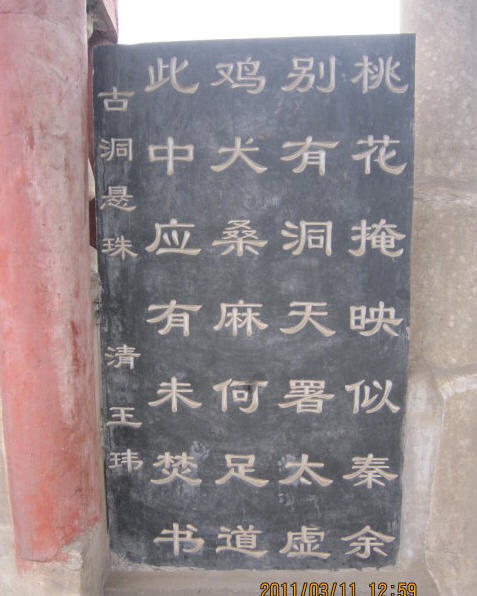 桃花掩映似秦余
别有洞天署太虚
鸡犬桑麻何足道
此中应有未焚书
古洞悬珠 清 王玮
2011/03/11 12:59